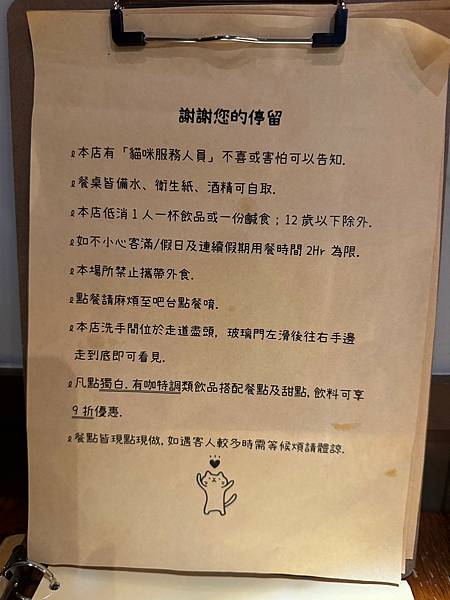 謝謝您的停留
本店有「貓咪服務人員」不喜或害怕可以告知.
餐桌皆備水、衛生紙、酒精可自取.
本店低消1人一杯飲品或一份鹹食；12歲以下除外.
如不小心客滿/假日及連續假期用餐時間2Hr為限.
本場所禁止攜帶外食.
點餐請麻煩至吧台點餐唷.
本店洗手間位於走道盡頭，玻璃門左滑後往右手邊
走到底即可看見.
凡點獨白.有咖特調類飲品搭配餐點及甜點,飲料可享
9折優惠.
餐點皆現點現做,如遇客人較多時需等候煩請體諒.